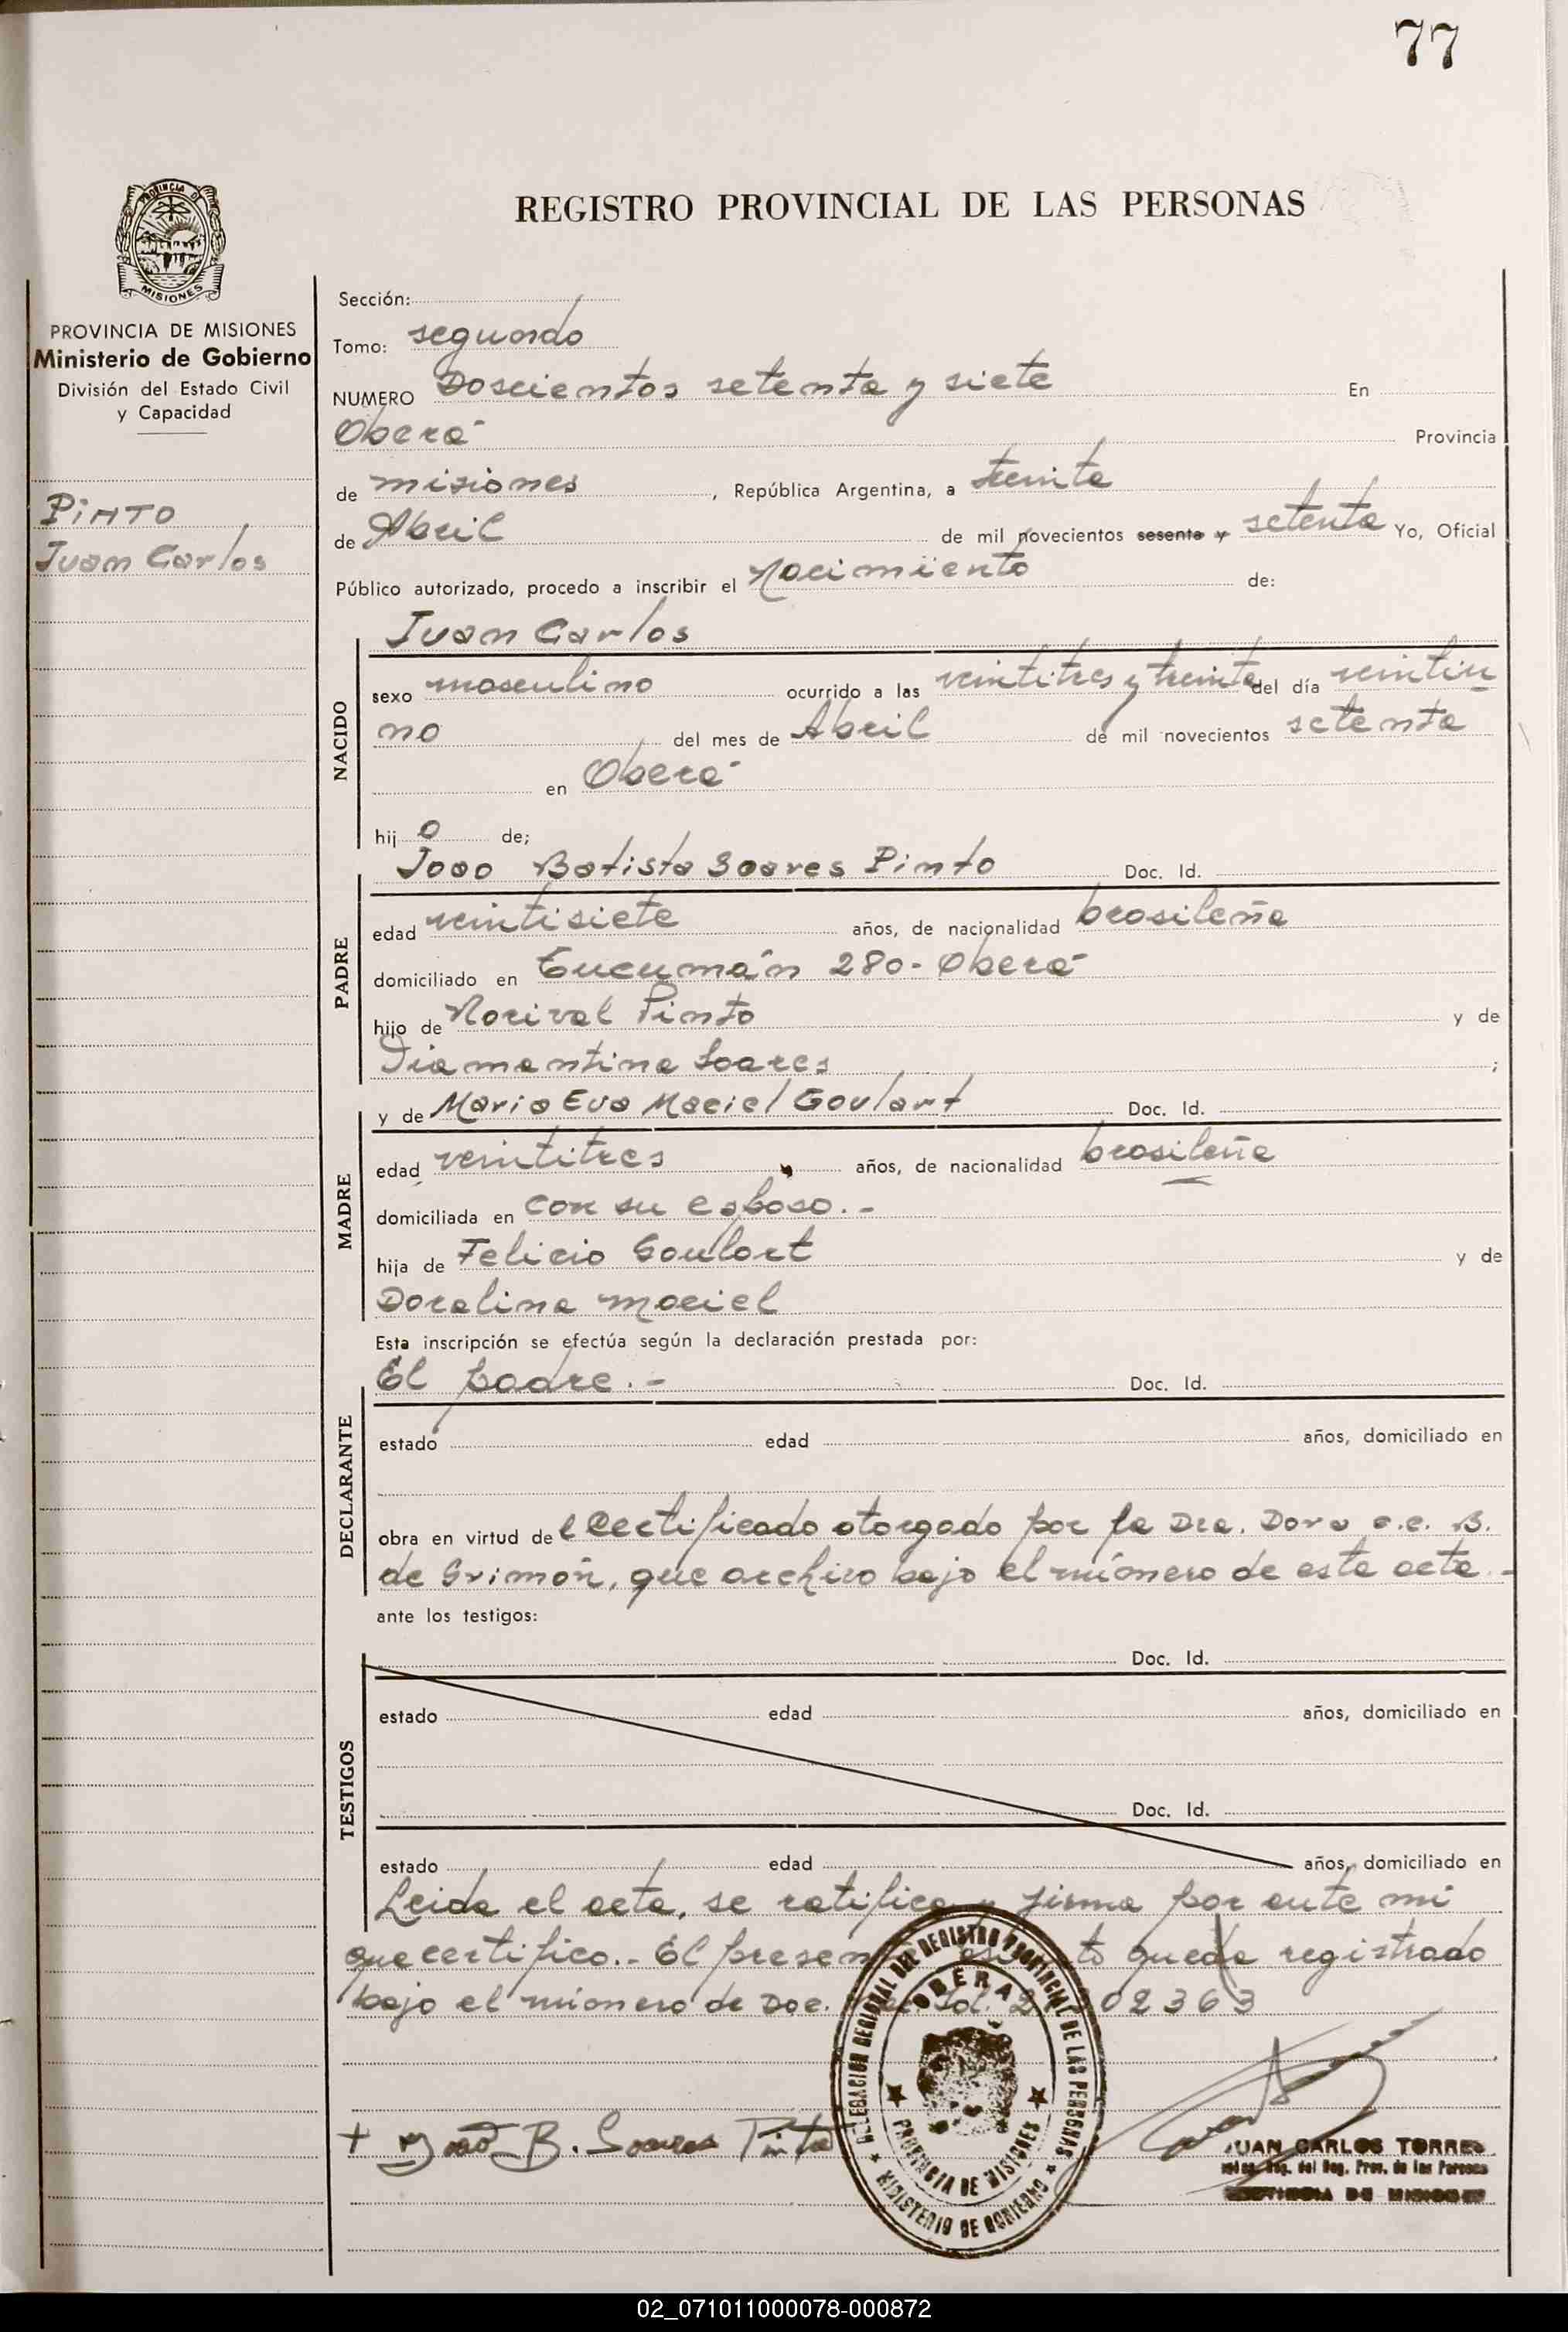 77
PROVINCIA DE
MISIONES
REGISTRO PROVINCIAL DE LAS PERSONAS
PROVINCIA DE MISIONES
Ministerio de Gobierno
División del Estado Civil
y Capacidad
PINTO
Juan Carlos
Sección:
Tomo: segundo
NUMERO Doscientos setenta y siete En
Oberá Provincia
de misiones, República Argentina, a treinta
de Abril de mil novecientos sesenta y setenta Yo, Oficial
Público autorizado, procedo a inscribir el Nacimiento de:
Juan Carlos
NACIDO
sexo masculino ocurrido a las veintitres y treinta del día veintiu
no del mes de Abril de mil novecientos setenta
en Oberá
hij o de;
PADRE
Joao Batista Soares Pinto Doc. Id.
edad veintisiete años, de nacionalidad brasileña
domiciliado en Tucumán 280- Oberá
hijo de Norival Pinto y de
Diamantina Soares ;
MADRE
y de Maria Eva Maciel Goulart Doc. Id.
edad veintitres años, de nacionalidad brasileña
domiciliada en con su esposo.-
hija de Felicio Goulart y de
Doralina Maciel
Esta inscripción se efectúa según la declaración prestada por:
DECLARANTE
El padre.- Doc. Id.
estado edad años, domiciliado en
obra en virtud de l certificado otorgado por la Dra. Dora e.c. B.
de Grimón, que archivo bajo el número de esta acta.-
ante los testigos:
TESTIGOS
Doc. Id.
estado edad años, domiciliado en
Doc. Id.
estado edad años, domiciliado en
Leida el acta, se ratifica y firma por ante mi
que certifico.- El presen to queda registrado
bajo el número de Doc. 02363
DELEGACION REGIONAL DEL REGISTRO PROVINCIAL DE LAS PERSONAS
OBERA
PROVINCIA DE MISIONES
MINISTERIO DE GOBIERNO
+ João B. Soares Pinto
JUAN CARLOS TORRES
Reg. del Reg. Prov. de las Personas
PROVINCIA DE MISIONES
02_071011000078-000872